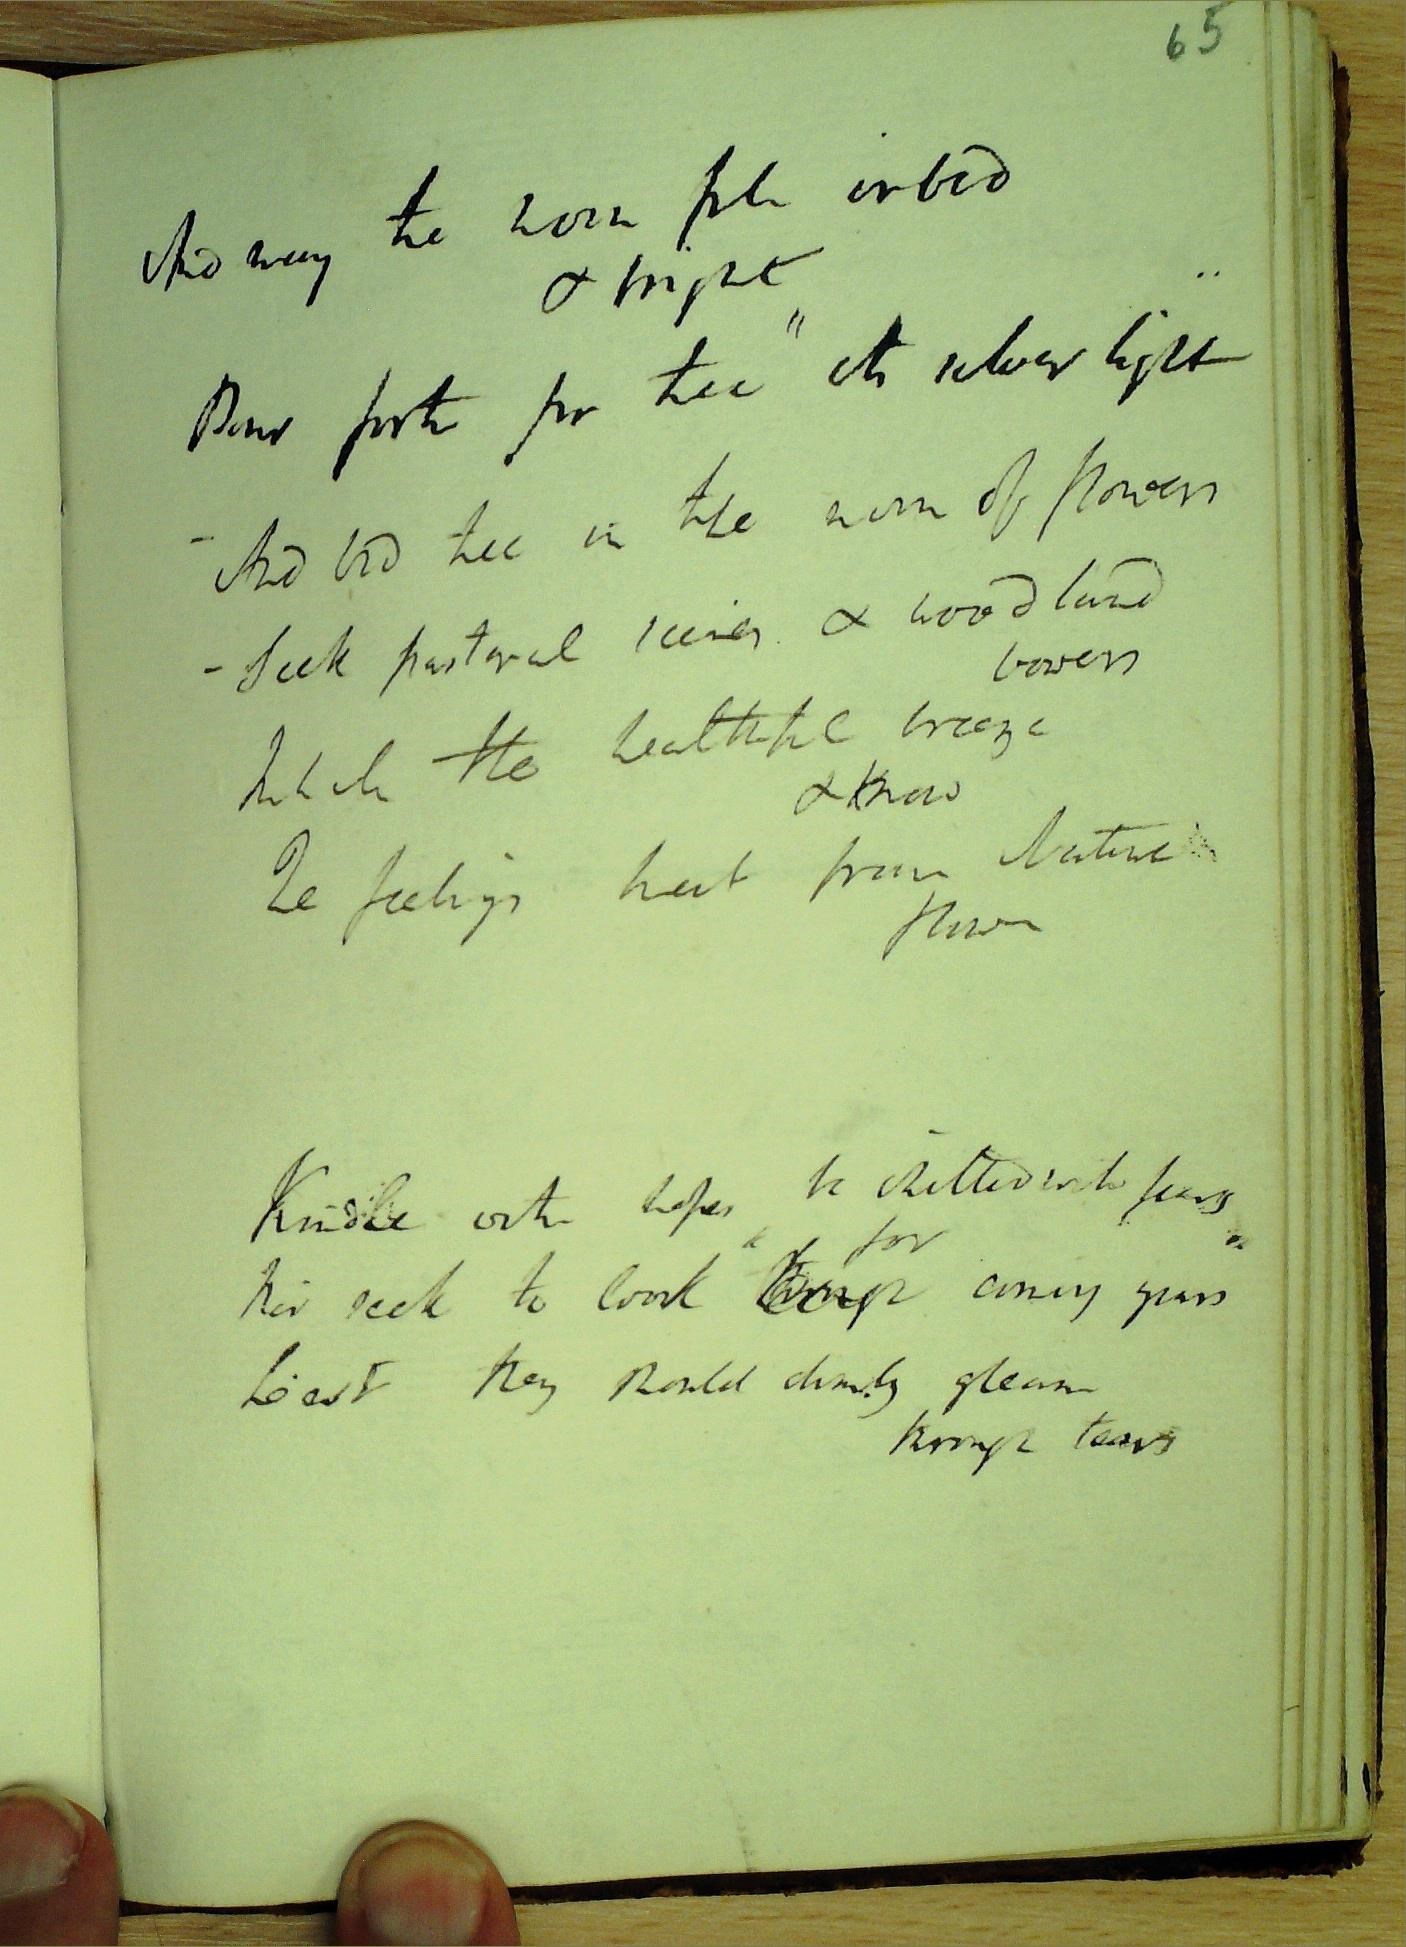 65
And may the moon full orbed
& bright
Pour forth for thee " its silver light "
- And bid thee in the morn of flowers
- Seek pastoral scenes & woodland
bowers
Inhale the healthful breeze
& know
The feelings that from Nature
flow
Kindle with hopes, be chilled with fears
Nor seek to look " through for coming years "
Least they should dimly gleam
through tears